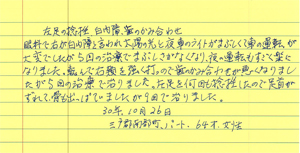 左足の捻挫、白内障、歯のかみ合わせ
眼科で右が白内障と言われ太陽光と夜車のライトがまぶしくて車の運転が
大変でしたが5回の治療でまぶしさがなくなり、夜の運転もすごく楽に
なりました。転んで右顎を強く打ったので歯のかみ合わせが悪くなりまし
たが5回の治療で治りました。左足を何回も捻挫したので足首が
ずれて骨も出っぱていましたが9回で治りました。
30年.10月26日
三戸郡南部町、パート、64才、女性